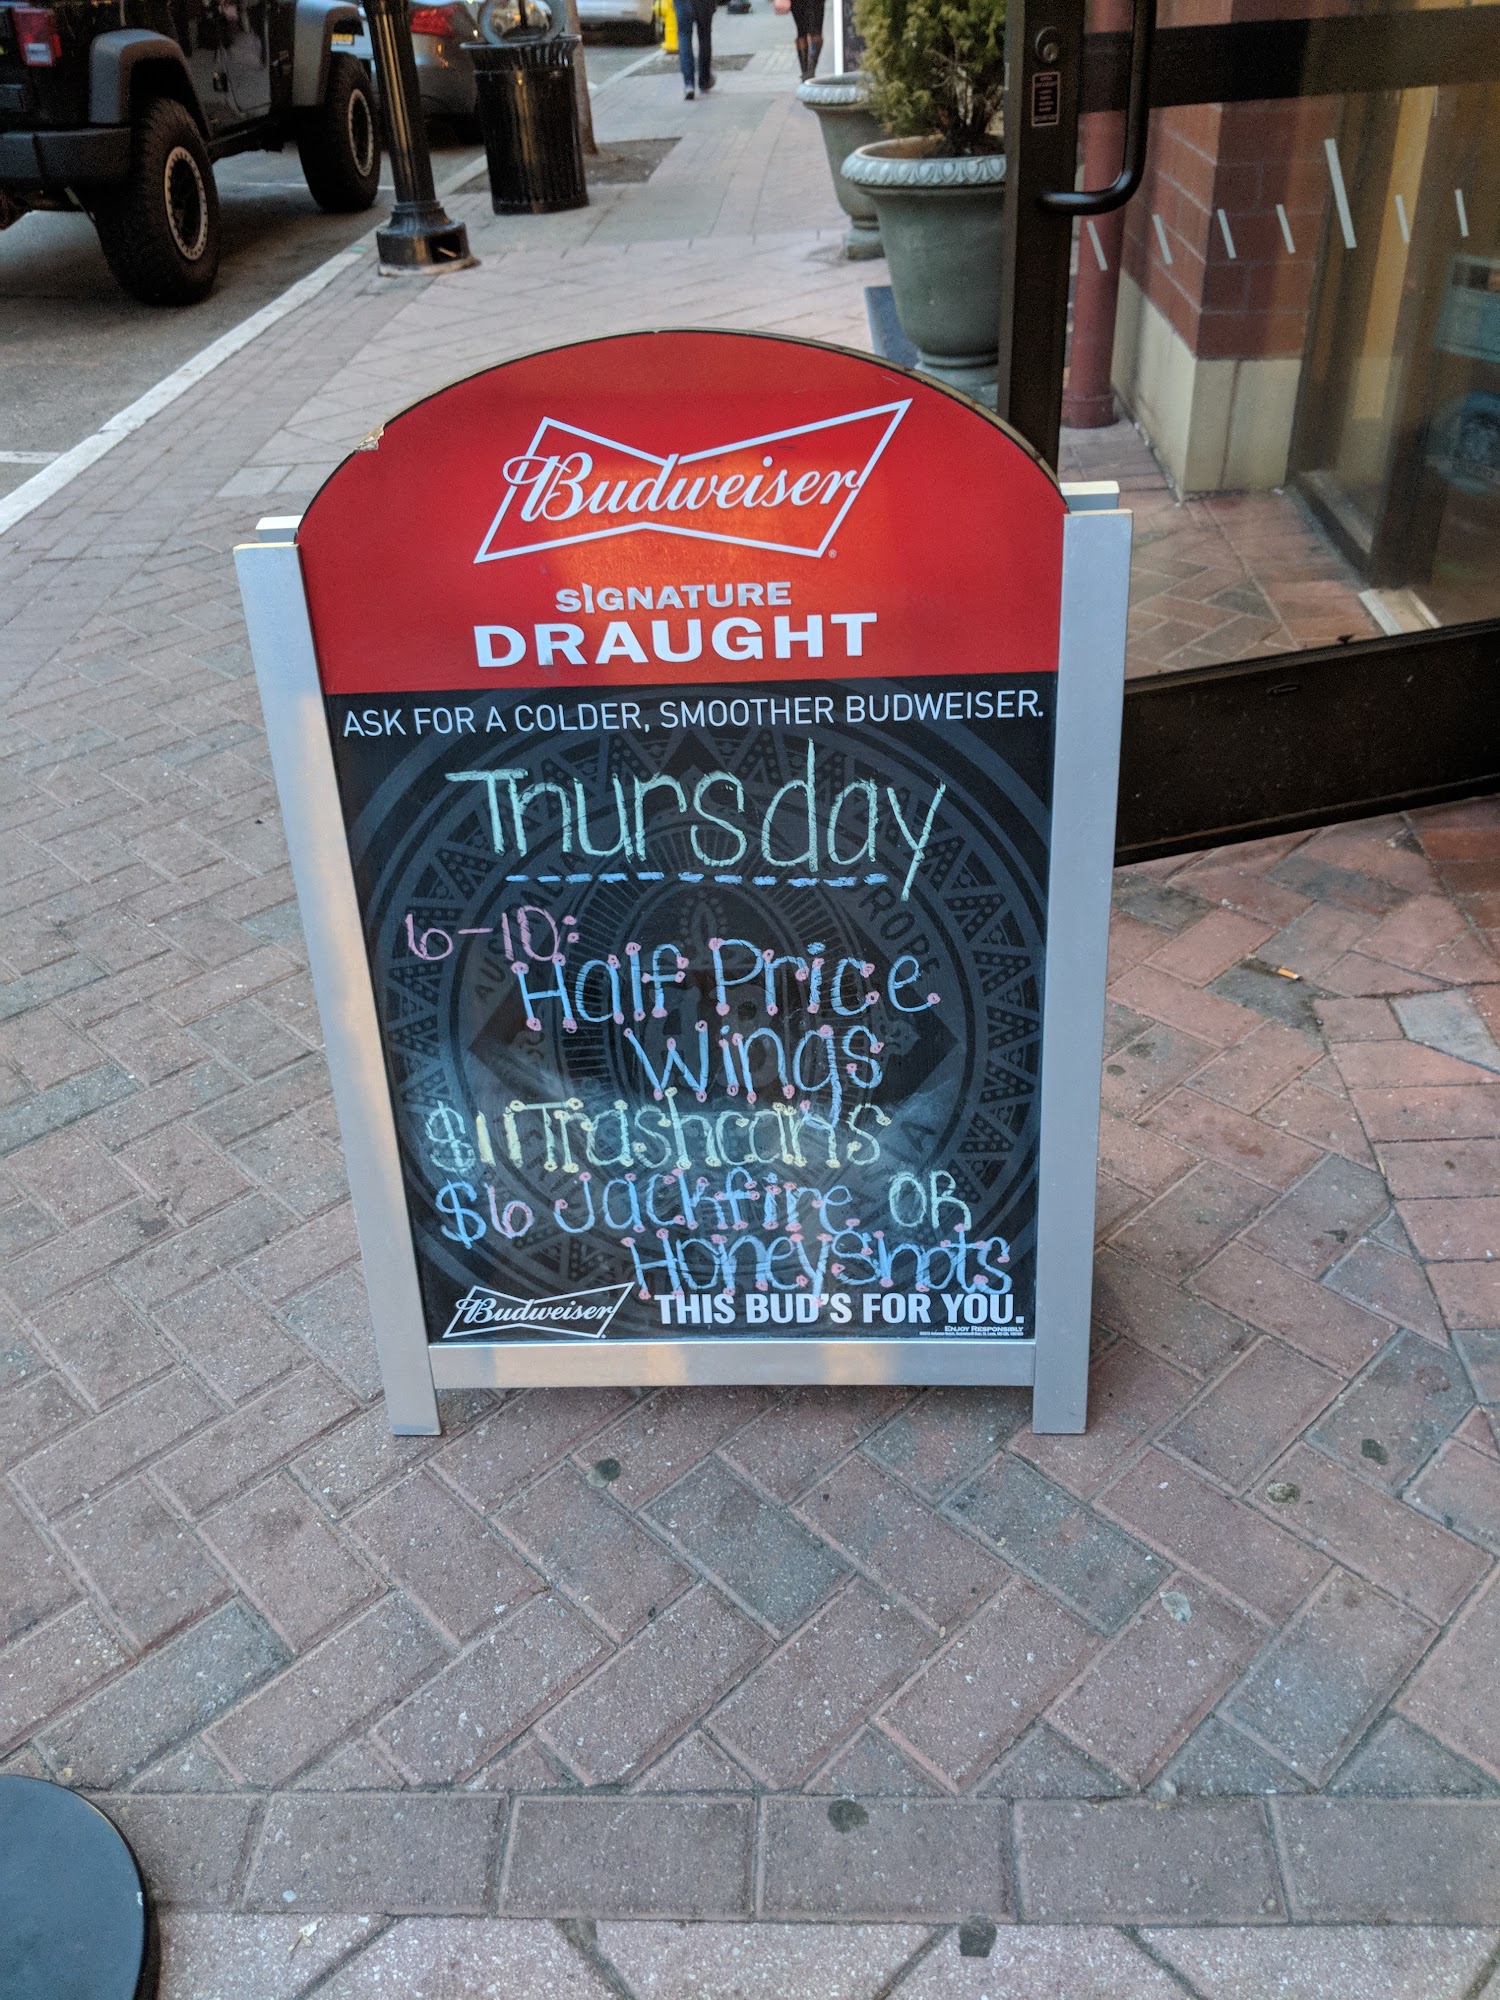 Budweiser
SIGNATURE
DRAUGHT
ASK FOR A COLDER, SMOOTHER BUDWEISER.
Thursday
6-10:
Half Price
Wings
$11 Trashcans
$6 Jackfire OR
Honey Shots
Budweiser
THIS BUD'S FOR YOU.
ENJOY RESPONSIBLY